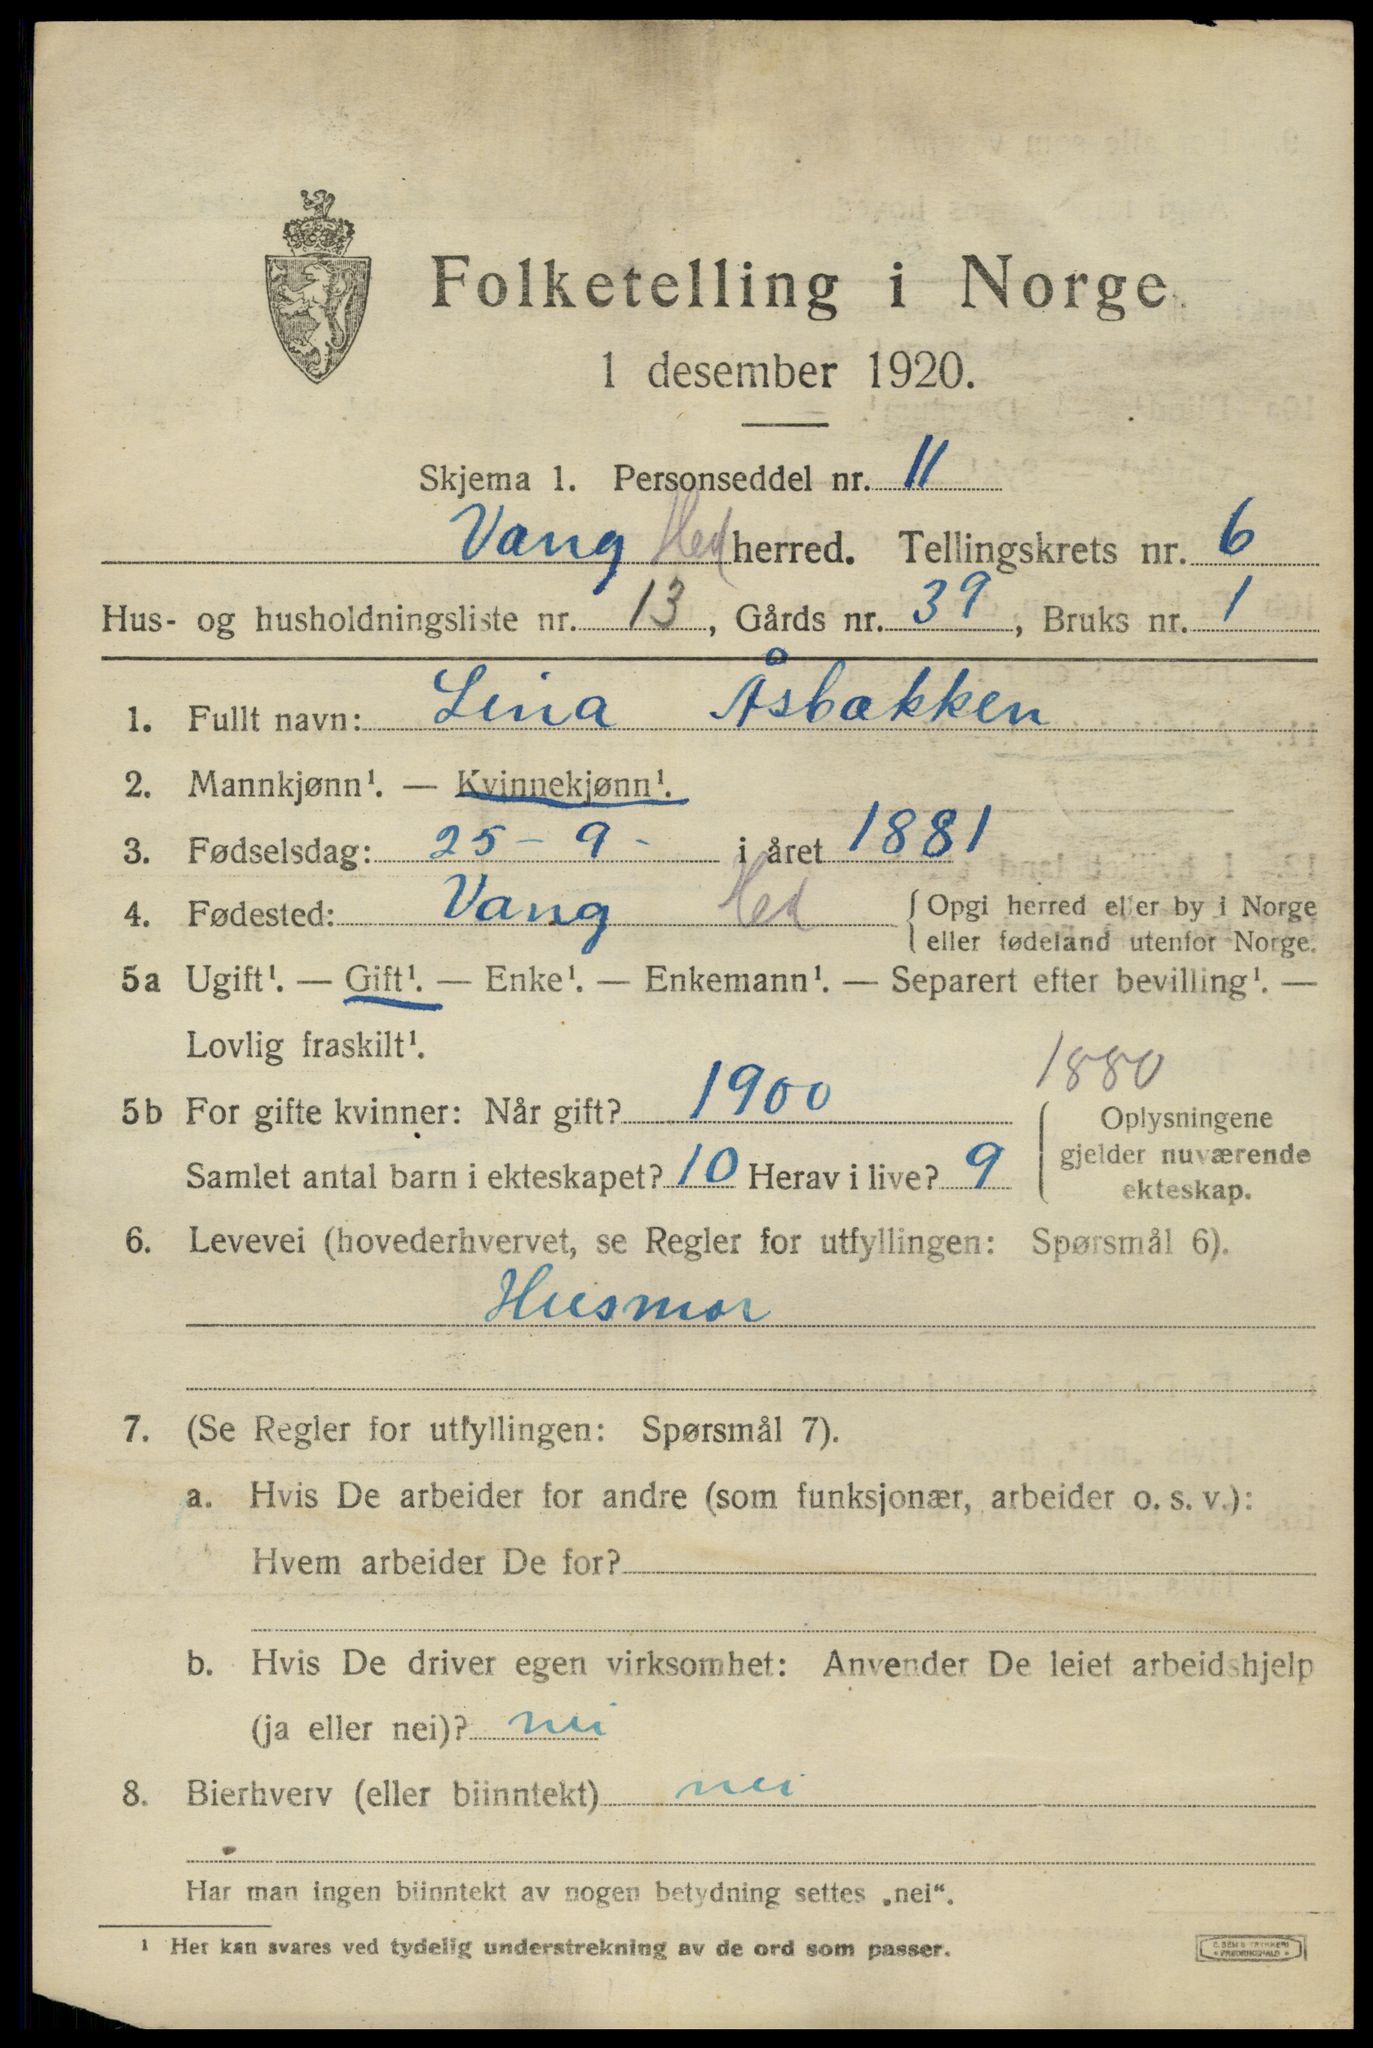 Folketelling i Norge
1 desember 1920.
Skjema 1. Personseddel nr. 11
Vang Hed herred. Tellingskrets nr. 6
Hus- og husholdningsliste nr. 13, Gårds nr. 39, Bruks nr. 1
1. Fullt navn: Lina Åsbakken
2. Mannkjønn¹. — Kvinnekjønn¹.
3. Fødselsdag: 25 - 9 - i året 1881
4. Fødested: Vang Hed { Opgi herred eller by i Norge
eller fødeland utenfor Norge.
5a Ugift¹. — Gift¹. — Enke¹. — Enkemann¹. — Separert efter bevilling¹. —
Lovlig fraskilt¹.
1880
5b For gifte kvinner: Når gift? 1900
Samlet antal barn i ekteskapet? 10 Herav i live? 9
Oplysningene
gjelder nuværende
ekteskap.
6. Levevei (hovederhvervet, se Regler for utfyllingen: Spørsmål 6).
Husmor
7. (Se Regler for utfyllingen: Spørsmål 7).
a. Hvis De arbeider for andre (som funksjonær, arbeider o. s. v.):
Hvem arbeider De for?
b. Hvis De driver egen virksomhet: Anvender De leiet arbeidshjelp
(ja eller nei)? nei
8. Bierhverv (eller biinntekt) nei
Har man ingen biinntekt av nogen betydning settes „nei“.
¹ Her kan svares ved tydelig understrekning av de ord som passer.